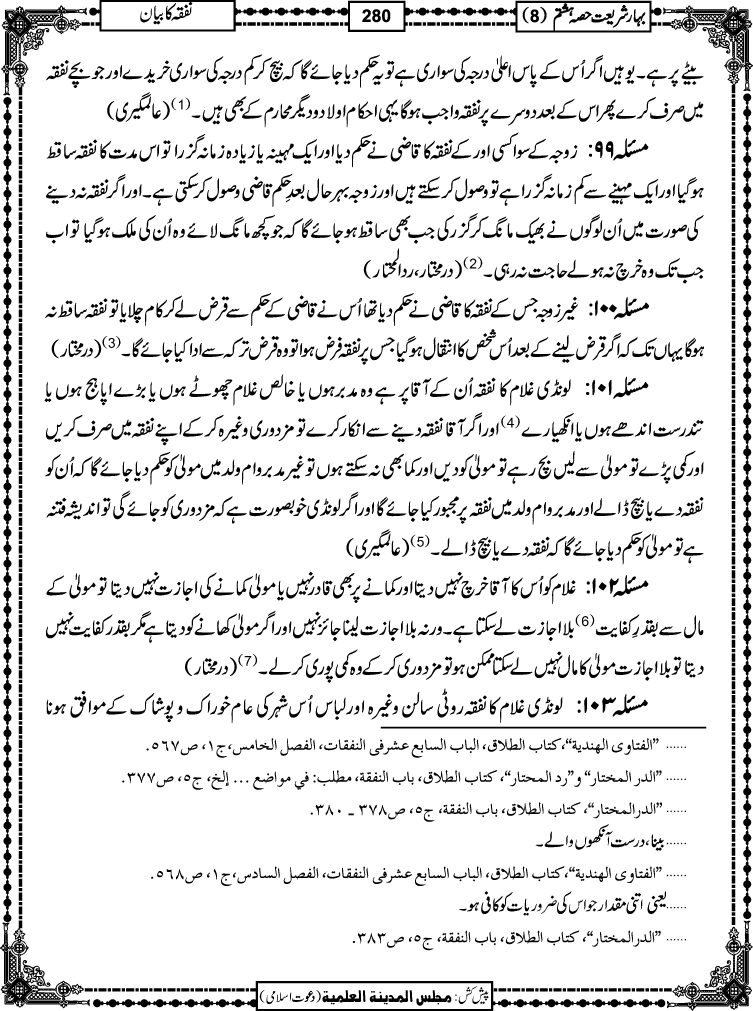 بہار شریعت حصہ ہشتم (8)
280
نفقہ کا بیان
بیٹے پر ہے۔ یوہیں اگر اُس کے پاس اعلیٰ درجہ کی سواری ہے تو یہ حکم دیا جائے گا کہ بیچ کر کم درجہ کی سواری خریدے اور جو بچے نفقہ
میں صرف کرے پھر اس کے بعد دوسرے پر نفقہ واجب ہوگا یہی احکام اولاد و دیگر محارم کے بھی ہیں۔(1) (عالمگیری)
مسئلہ ۹۹: زوجہ کے سوا کسی اور کے نفقہ کا قاضی نے حکم دیا اور ایک مہینہ یا زیادہ زمانہ گزرا تو اس مدت کا نفقہ ساقط
ہوگیا اور ایک مہینے سے کم زمانہ گزرا ہے تو وصول کر سکتے ہیں اور زوجہ بہر حال بعد حکمِ قاضی وصول کر سکتی ہے۔ اور اگر نفقہ نہ دینے
کی صورت میں اُن لوگوں نے بھیک مانگ کر گزر کی جب بھی ساقط ہو جائے گا کہ جو کچھ مانگ لائے وہ اُن کی ملک ہوگیا تو اب
جب تک وہ خرچ نہ ہولے حاجت نہ رہی۔(2) (درمختار، ردالمحتار)
مسئلہ ۱۰۰: غیر زوجہ جس کے نفقہ کا قاضی نے حکم دیا تھا اُس نے قاضی کے حکم سے قرض لے کر کام چلایا تو نفقہ ساقط نہ
ہوگا یہاں تک کہ اگر قرض لینے کے بعد اُس شخص کا انتقال ہوگیا جس پر نفقہ فرض ہوا تو وہ قرض ترکہ سے ادا کیا جائے گا۔(3) (درمختار)
مسئلہ ۱۰۱: لونڈی غلام کا نفقہ اُن کے آقا پر ہے وہ مدبر ہوں یا خالص غلام چھوٹے ہوں یا بڑے اپاہج ہوں یا
تندرست اندھے ہوں یا انکھیارے(4) اور اگر آقا نفقہ دینے سے انکار کرے تو مزدوری وغیرہ کر کے اپنے نفقہ میں صرف کریں
اور کمی پڑے تو مولیٰ سے لیں بچ رہے تو مولیٰ کو دیں اور کما بھی نہ سکتے ہوں تو غیر مدبر و ام ولد میں مولیٰ کو حکم دیا جائے گا کہ اُن کو
نفقہ دے یا بیچ ڈالے اور مدبر و ام ولد میں نفقہ پر مجبور کیا جائے گا اور اگر لونڈی خوبصورت ہے کہ مزدوری کو جائے گی تو اندیشہ فتنہ
ہے تو مولیٰ کو حکم دیا جائے گا کہ نفقہ دے یا بیچ ڈالے۔(5) (عالمگیری)
مسئلہ ۱۰۲: غلام کو اُس کا آقا خرچ نہیں دیتا اور کمانے پر بھی قادر نہیں یا مولیٰ کمانے کی اجازت نہیں دیتا تو مولیٰ کے
مال سے بقدر کفایت(6) بلا اجازت لے سکتا ہے۔ ورنہ بلا اجازت لینا جائز نہیں اور اگر مولیٰ کھانے کو دیتا ہے مگر بقدر کفایت نہیں
دیتا تو بلا اجازت مولیٰ کا مال نہیں لے سکتا ممکن ہو تو مزدوری کر کے وہ کمی پوری کر لے۔(7) (درمختار)
مسئلہ ۱۰۳: لونڈی غلام کا نفقہ روٹی سالن وغیرہ اور لباس اُس شہر کی عام خوراک و پوشاک کے موافق ہونا
...... ”الفتاوی الهندية“، كتاب الطلاق، الباب السابع عشرفی النفقات، الفصل الخامس، ج١، ص٥٦٧.
...... ”الدر المختار“ و”رد المحتار“، كتاب الطلاق، باب النفقة، مطلب: في مواضع ... إلخ، ج٥، ص٣٧٧.
...... ”الدرالمختار“، كتاب الطلاق، باب النفقة، ج٥، ص٣٧٨ ـ ٣٨٠.
...... بینا، درست آنکھوں والے۔
...... ”الفتاوی الهندية“، كتاب الطلاق، الباب السابع عشرفی النفقات، الفصل السادس، ج١، ص٥٦٨.
...... یعنی اتنی مقدار جو اس کی ضروریات کو کافی ہو۔
...... ”الدرالمختار“، كتاب الطلاق، باب النفقة، ج٥، ص٣٨٣.
پیش کش: مجلس المدینة العلمیة (دعوت اسلامی)